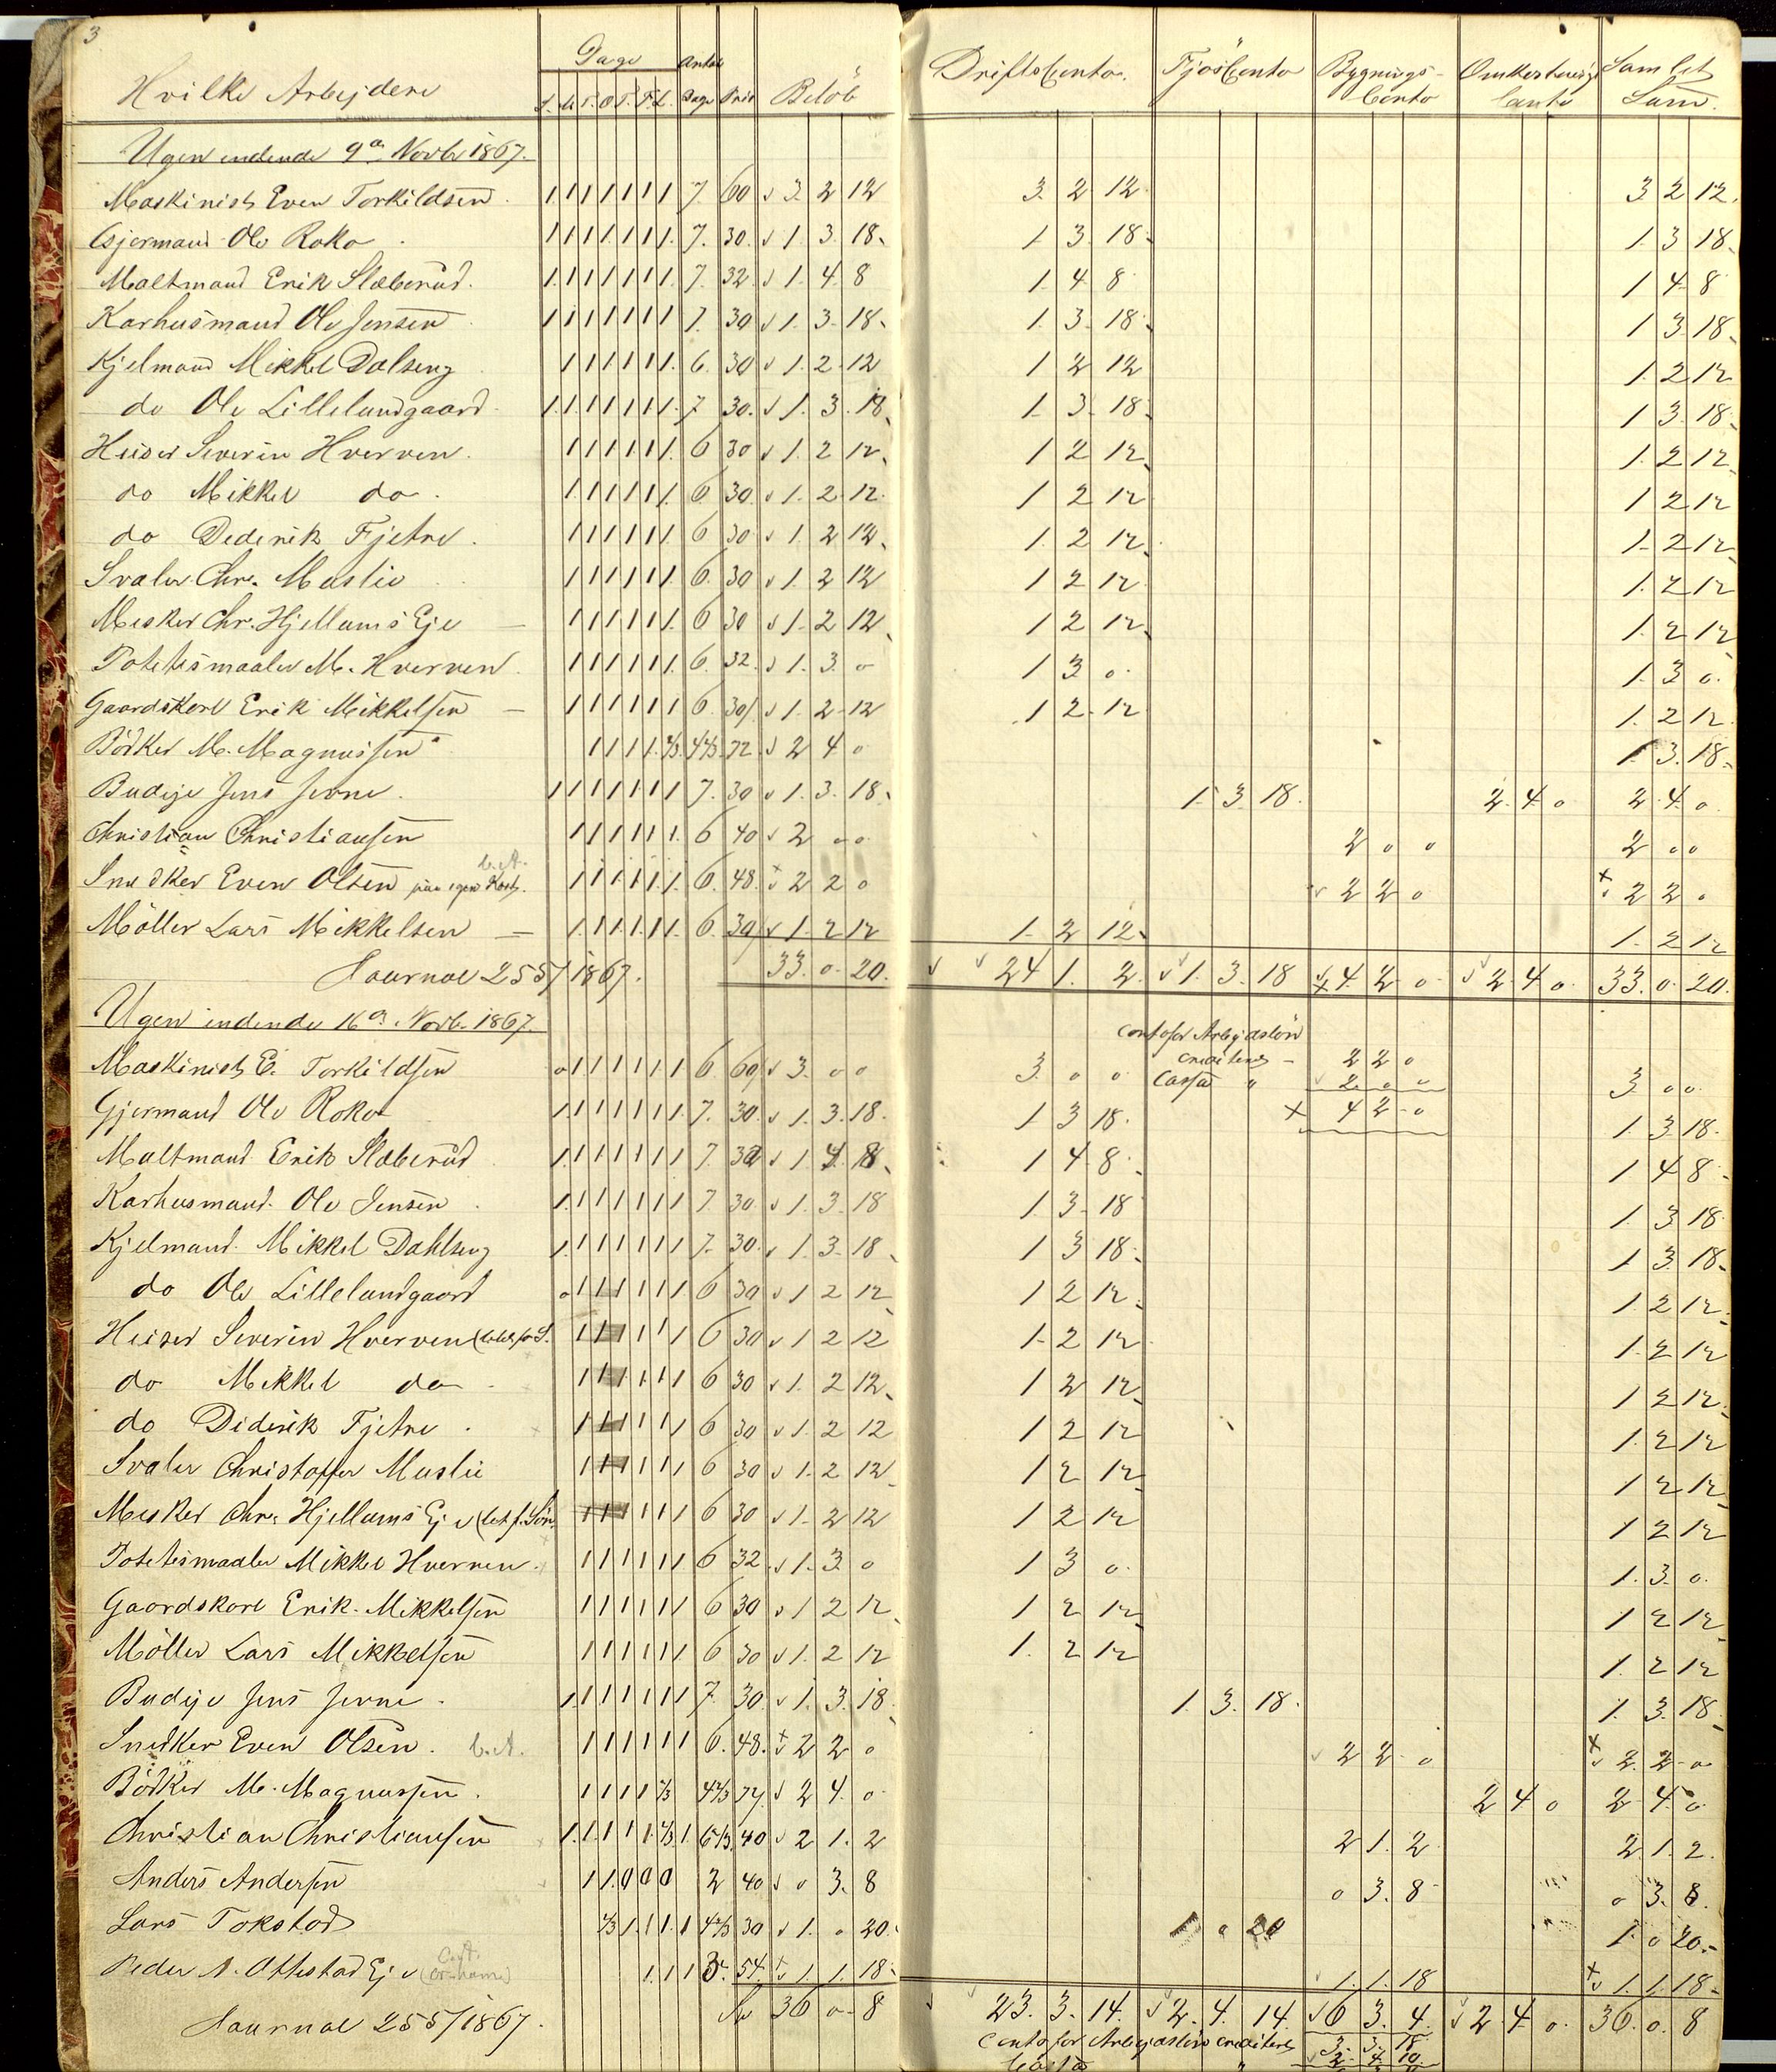 3
Hvilke Arbejdere Dage Antal Dage Pris Beløb Driftsconto. Fjösconto Bygnings-Conto Omkostnings Conto Samlet Sum.
S. M. T. O. T. F. L.
Ugen endende 9de Novbr 1867.
Maskinist Even Torkildsen 1 1 1 1 1 1 1 7 60 3 2 12 3 2 12 3 2 12
Gjermand Ole Roko 1 1 1 1 1 1 1 7 30 1 3 18 1 3 18 1 3 18
Maltmand Erik Slæberud 1 1 1 1 1 1 1 7 32 1 4 8 1 4 8 1 4 8
Karhusmand Ole Jensen 1 1 1 1 1 1 1 7 30 1 3 18 1 3 18 1 3 18
Kjelmand Mikkel Dalseng 1 1 1 1 1 1 6 30 1 2 12 1 2 12 1 2 12
do Ole Lillelundgaard 1 1 1 1 1 1 1 7 30 1 3 18 1 3 18 1 3 18
Heiser Severin Hverven 1 1 1 1 1 1 6 30 1 2 12 1 2 12 1 2 12
do Mikkel do 1 1 1 1 1 1 6 30 1 2 12 1 2 12 1 2 12
do Dederik Fjetre 1 1 1 1 1 1 6 30 1 2 12 1 2 12 1 2 12
Svaler Chr. Muslie 1 1 1 1 1 1 6 30 1 2 12 1 2 12 1 2 12
Mesker Chr. Hjellums Eje 1 1 1 1 1 1 6 30 1 2 12 1 2 12 1 2 12
Potetesmaaler M. Hverven 1 1 1 1 1 1 6 32 1 3 0 1 3 0 1 3 0
Gaardskarl Erik Mikkelsen 1 1 1 1 1 1 6 30 1 2 12 1 2 12 1 2 12
Bödker M. Magnussen 1 1 1 1 2/3 4 2/3 72 2 4 0 1 3 18
Budeje Jens Jerne 1 1 1 1 1 1 1 7 30 1 3 18 1 3 18 2 4 0 2 4 0
Christian Christiansen 1 1 1 1 1 1 6 40 2 0 0 2 0 0 2 0 0
Snedker Even Olsen paa egen Kost. 1 1 1 1 1 1 6 48 2 2 0 2 2 0 2 2 0
Möller Lars Mikkelsen 1 1 1 1 1 1 6 30 1 2 12 1 2 12 1 2 12
Journal 255/1867. 33 0 20 24 1 2 1 3 18 4 2 0 2 4 0 33 0 20
Ugen endende 16de Novbr 1867
Conto for Arbejdslön
crediteres 2 2 0
Cassa " 2 0 0
4 2 0
Maskinist E. Torkildsen 0 1 1 1 1 1 1 6 60 3 0 0 3 0 0 3 0 0
Gjermand Ole Roko 1 1 1 1 1 1 1 7 30 1 3 18 1 3 18 1 3 18
Maltmand Erik Slæberud 1 1 1 1 1 1 1 7 32 1 4 8 1 4 8 1 4 8
Karhusmand Ole Jensen 1 1 1 1 1 1 1 7 30 1 3 18 1 3 18 1 3 18
Kjelmand Mikkel Dahlseng 1 1 1 1 1 1 1 7 30 1 3 18 1 3 18 1 3 18
do Ole Lillelundgaard 0 1 1 1 1 1 1 6 30 1 2 12 1 2 12 1 2 12
Heiser Severin Hverven 1 1 1 1 1 1 6 30 1 2 12 1 2 12 1 2 12
do Mikkel do 1 1 1 1 1 1 6 30 1 2 12 1 2 12 1 2 12
do Diderik Fjetre 1 1 1 1 1 1 6 30 1 2 12 1 2 12 1 2 12
Svaler Christoffer Muslie 1 1 1 1 1 1 6 30 1 2 12 1 2 12 1 2 12
Mesker Chr. Hjellums Eje 1 1 1 1 1 1 6 30 1 2 12 1 2 12 1 2 12
Potetesmaaler Mikkel Hverven 1 1 1 1 1 1 6 32 1 3 0 1 3 0 1 3 0
Gaardskarl Erik Mikkelsen 1 1 1 1 1 1 6 30 1 2 12 1 2 12 1 2 12
Möller Lars Mikkelsen 1 1 1 1 1 1 6 30 1 2 12 1 2 12 1 2 12
Budeje Jens Jerne 1 1 1 1 1 1 1 7 30 1 3 18 1 3 18 1 3 18
Snedker Even Olsen 1 1 1 1 1 1 6 48 2 2 0 2 2 0 2 2 0
Bödker M. Magnussen 1 1 1 1 2/3 4 2/3 72 2 4 0 2 4 0 2 4 0
Christian Christiansen 1 1 1 1 1 2/3 1 6 2/3 40 2 1 2 2 1 2 2 1 2
Anders Andersen 1 1 0 0 0 2 40 0 3 8 0 3 8 0 3 8
Lars Tokstad 2/3 1 1 1 1 4 2/3 30 1 0 20 1 0 20 1 0 20
Peder N. Ottestad Eje 1 1 1 3 54 1 1 18 1 1 18 1 1 18
Journal 255/1867. 36 0 8 23 3 14 2 4 14 6 3 4 2 4 0 36 0 8
Conto for Arbejdslön crediteres 3 3 18
Cassa " 2 4 10